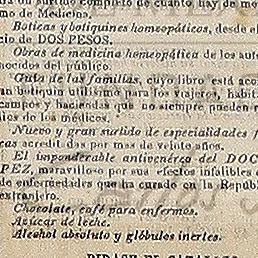 un surtido completo de cuanto hay de mo
mo de Medicina.
Boticas y botiquines homeopáticos, desde el
cio de DOS PESOS.
Obras de medicina homeopática de los aut
nocidos del público.
Guía de las familias, cuyo libro está aco
gran botiquin utilísimo para los viajeros, habit
campos y haciendas que no siempre pueden r
lios de los médicos.
Nuevo y gran surtido de especialidades f
cas acreditadas por mas de veinte años.
El imponderable antivenéreo del DOC
PEZ, maravilloso por sus efectos infalibles
de enfermedades que ha curado en la Repúbl
extranjero.
Chocolate, café para enfermos.
Azúcar de leche.
Alcohol absoluto y glóbulos inertes.